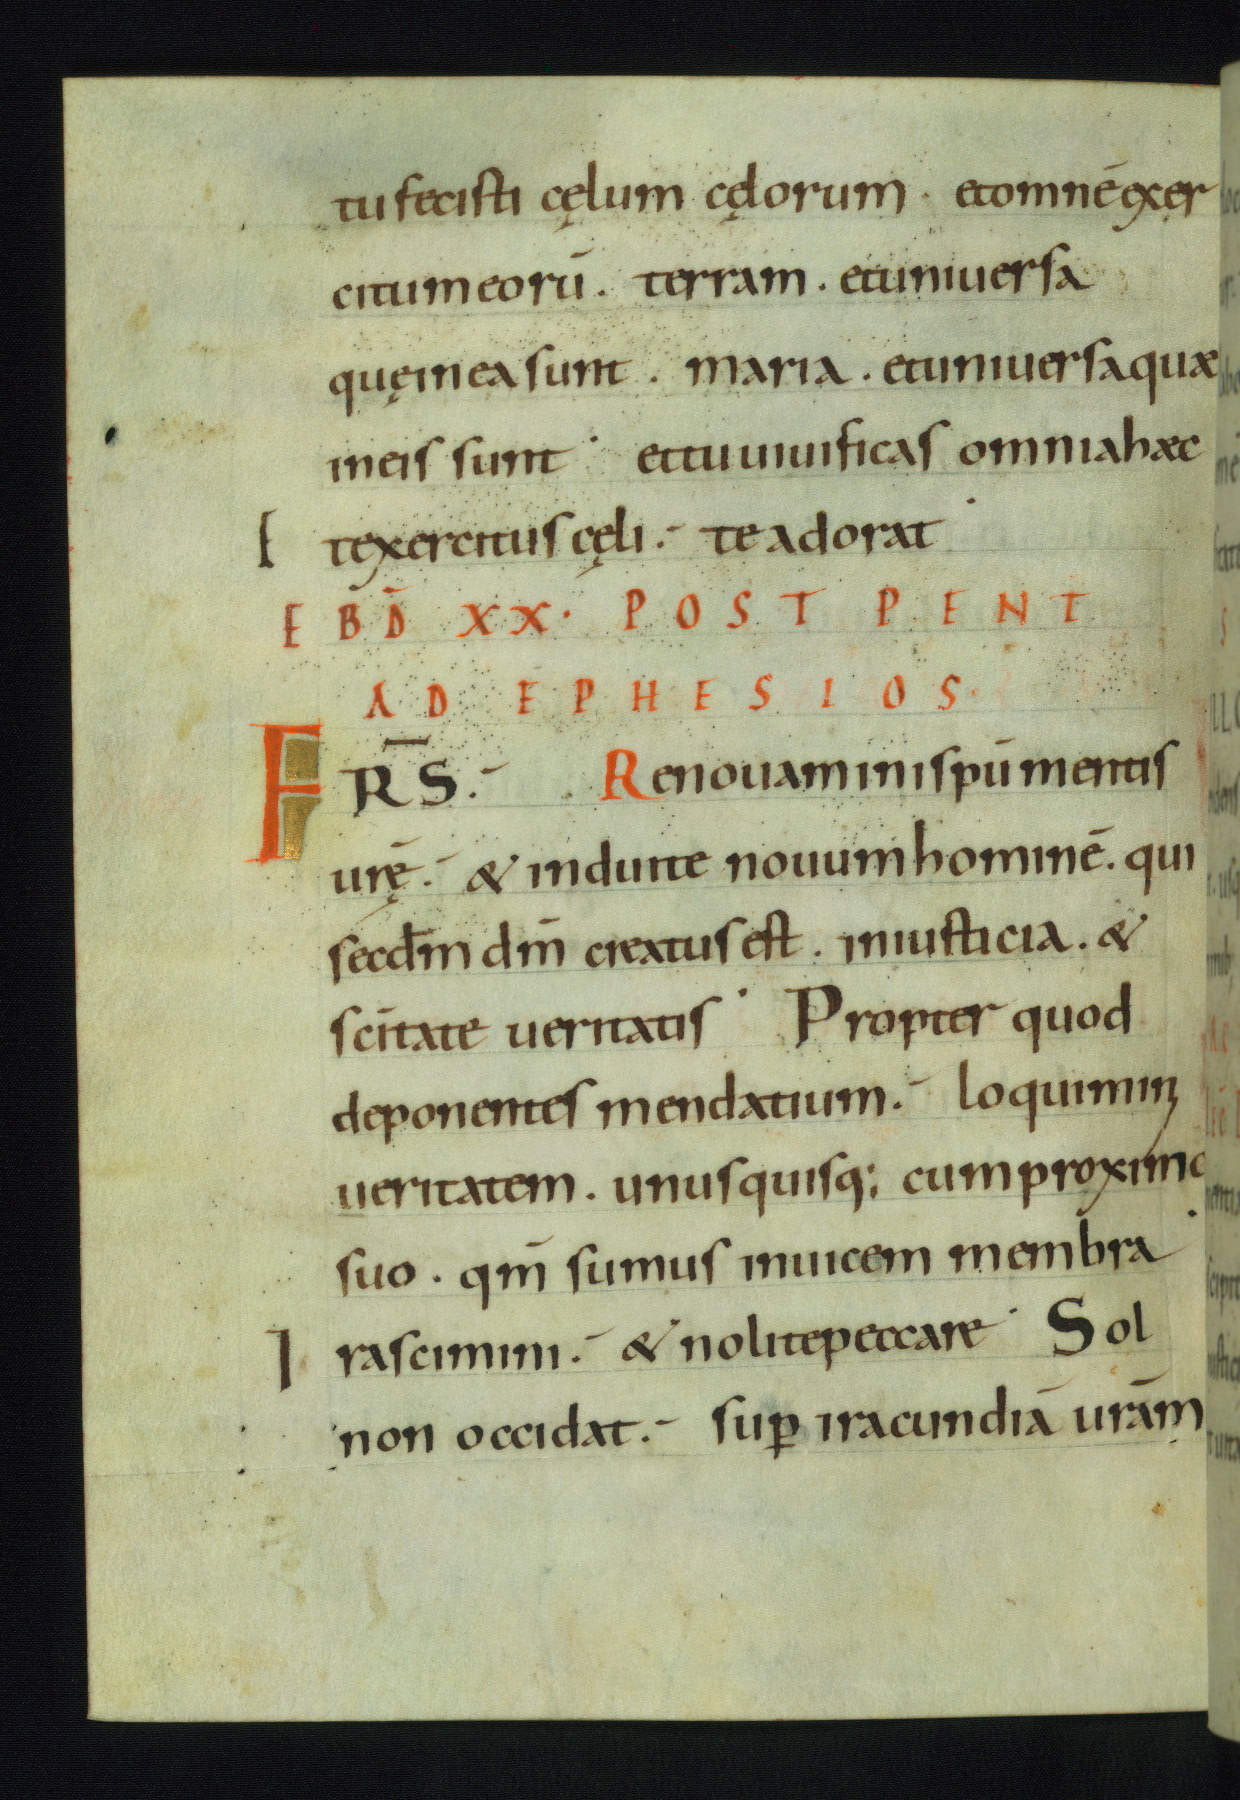 tu fecisti cęlum cęlorum · et omnē exer
citum eorū . terram . et uniuersa
quę in ea sunt . maria . et uniuersa quæ
in eis sunt · et tu uiuificas omnia hæc
E t exercitus cęli . te adorat ·
EBD̄ XX · POST PENT
AD EPHESIOS ·
FR̄S . Renouamini spū mentis
urę̄ . & induite nouum hominē . qui
secdm̄ dm̄ creatus est . in iusticia . &
sc̄itate ueritatis · Propter quod
deponentes mendatium . loquimini
ueritatem . unusquisq; cum proximo
suo . qm̄ sumus inuicem membra ·
I rascimini . & nolite peccare · Sol
non occidat . sup̱ iracundiā urām